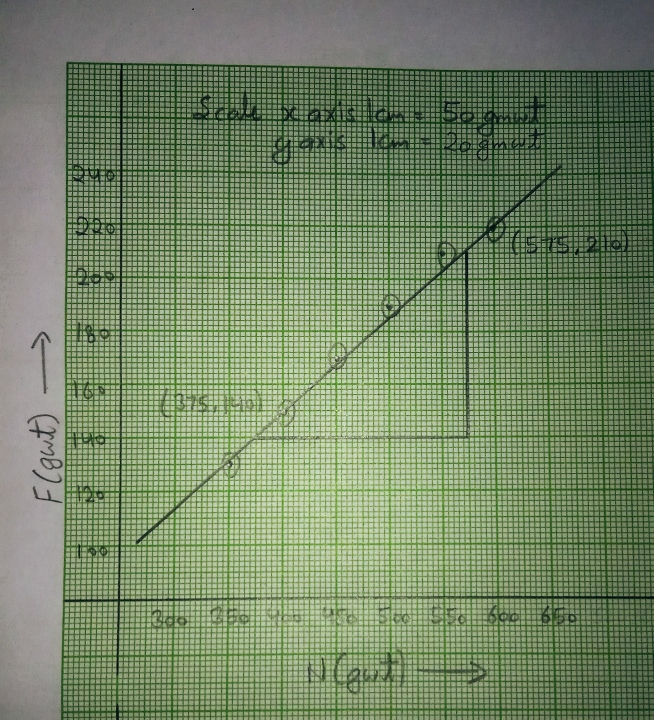 Scale x axis 1cm = 50 gmwt
y axis 1cm = 20 gmwt
240
220
(575, 210)
200
180
160
(375, 140)
140
120
100
F(gwt)
300 350 400 450 500 550 600 650
N(gwt)